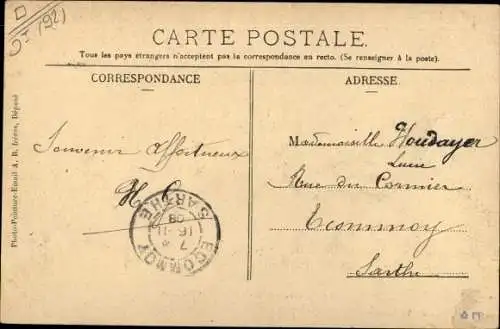 CARTE POSTALE.
Tous les pays étrangers n'acceptent pas la correspondance au recto. (Se renseigner à la poste).
CORRESPONDANCE
ADRESSE.
Souvenir affectueux
H
Mademoiselle Houdayer
Lucie
Rue du Cormier
Ecommoy
Sarthe
ECOMMOY
SARTHE
7
16-11
08
Photo-Peinture-Email A. B.
Déposé